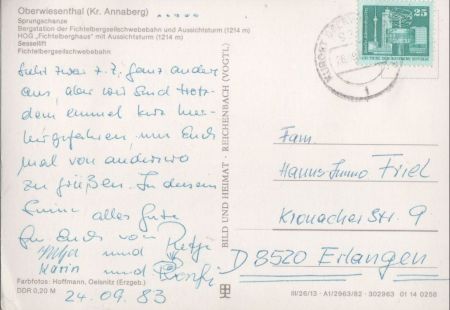 Oberwiesenthal (Kr. Annaberg)
Sprungschanze
Bergstation der Fichtelbergseilschwebebahn und Aussichtsturm (1214 m)
HOG „Fichtelberghaus" mit Aussichtsturm (1214 m)
Sessellift
Fichtelbergseilschwebebahn
Sieht zwar z. Z. ganz anders
aus, aber wir sind trotz-
dem einmal kurz hier-
hergefahren, um Euch
mal von anderswo
zu grüßen. In diesem
Sinne alles Gute
für Euch von
und
Karin und
24.09.83
Farbfotos: Hoffmann, Oelsnitz (Erzgeb.)
DDR 0,20 M
BILD UND HEIMAT · REICHENBACH (VOGTL)
25
Fam.
Friel
Kronacher Str. 9
D 8520 Erlangen
III/26/13 · A1/2963/82 · 302963 01 14 0256